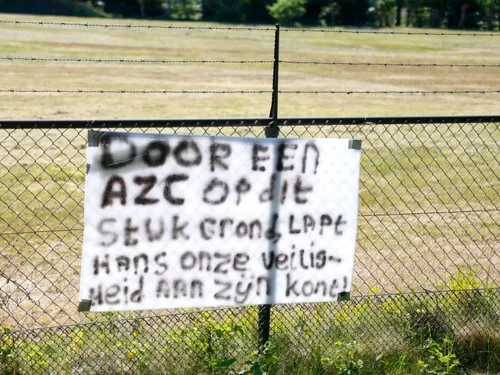 DOOR EEN
AZC OP dit
Stuk Grond, LAPt
HANS onze veilig-
Heid AAN zijn kont!